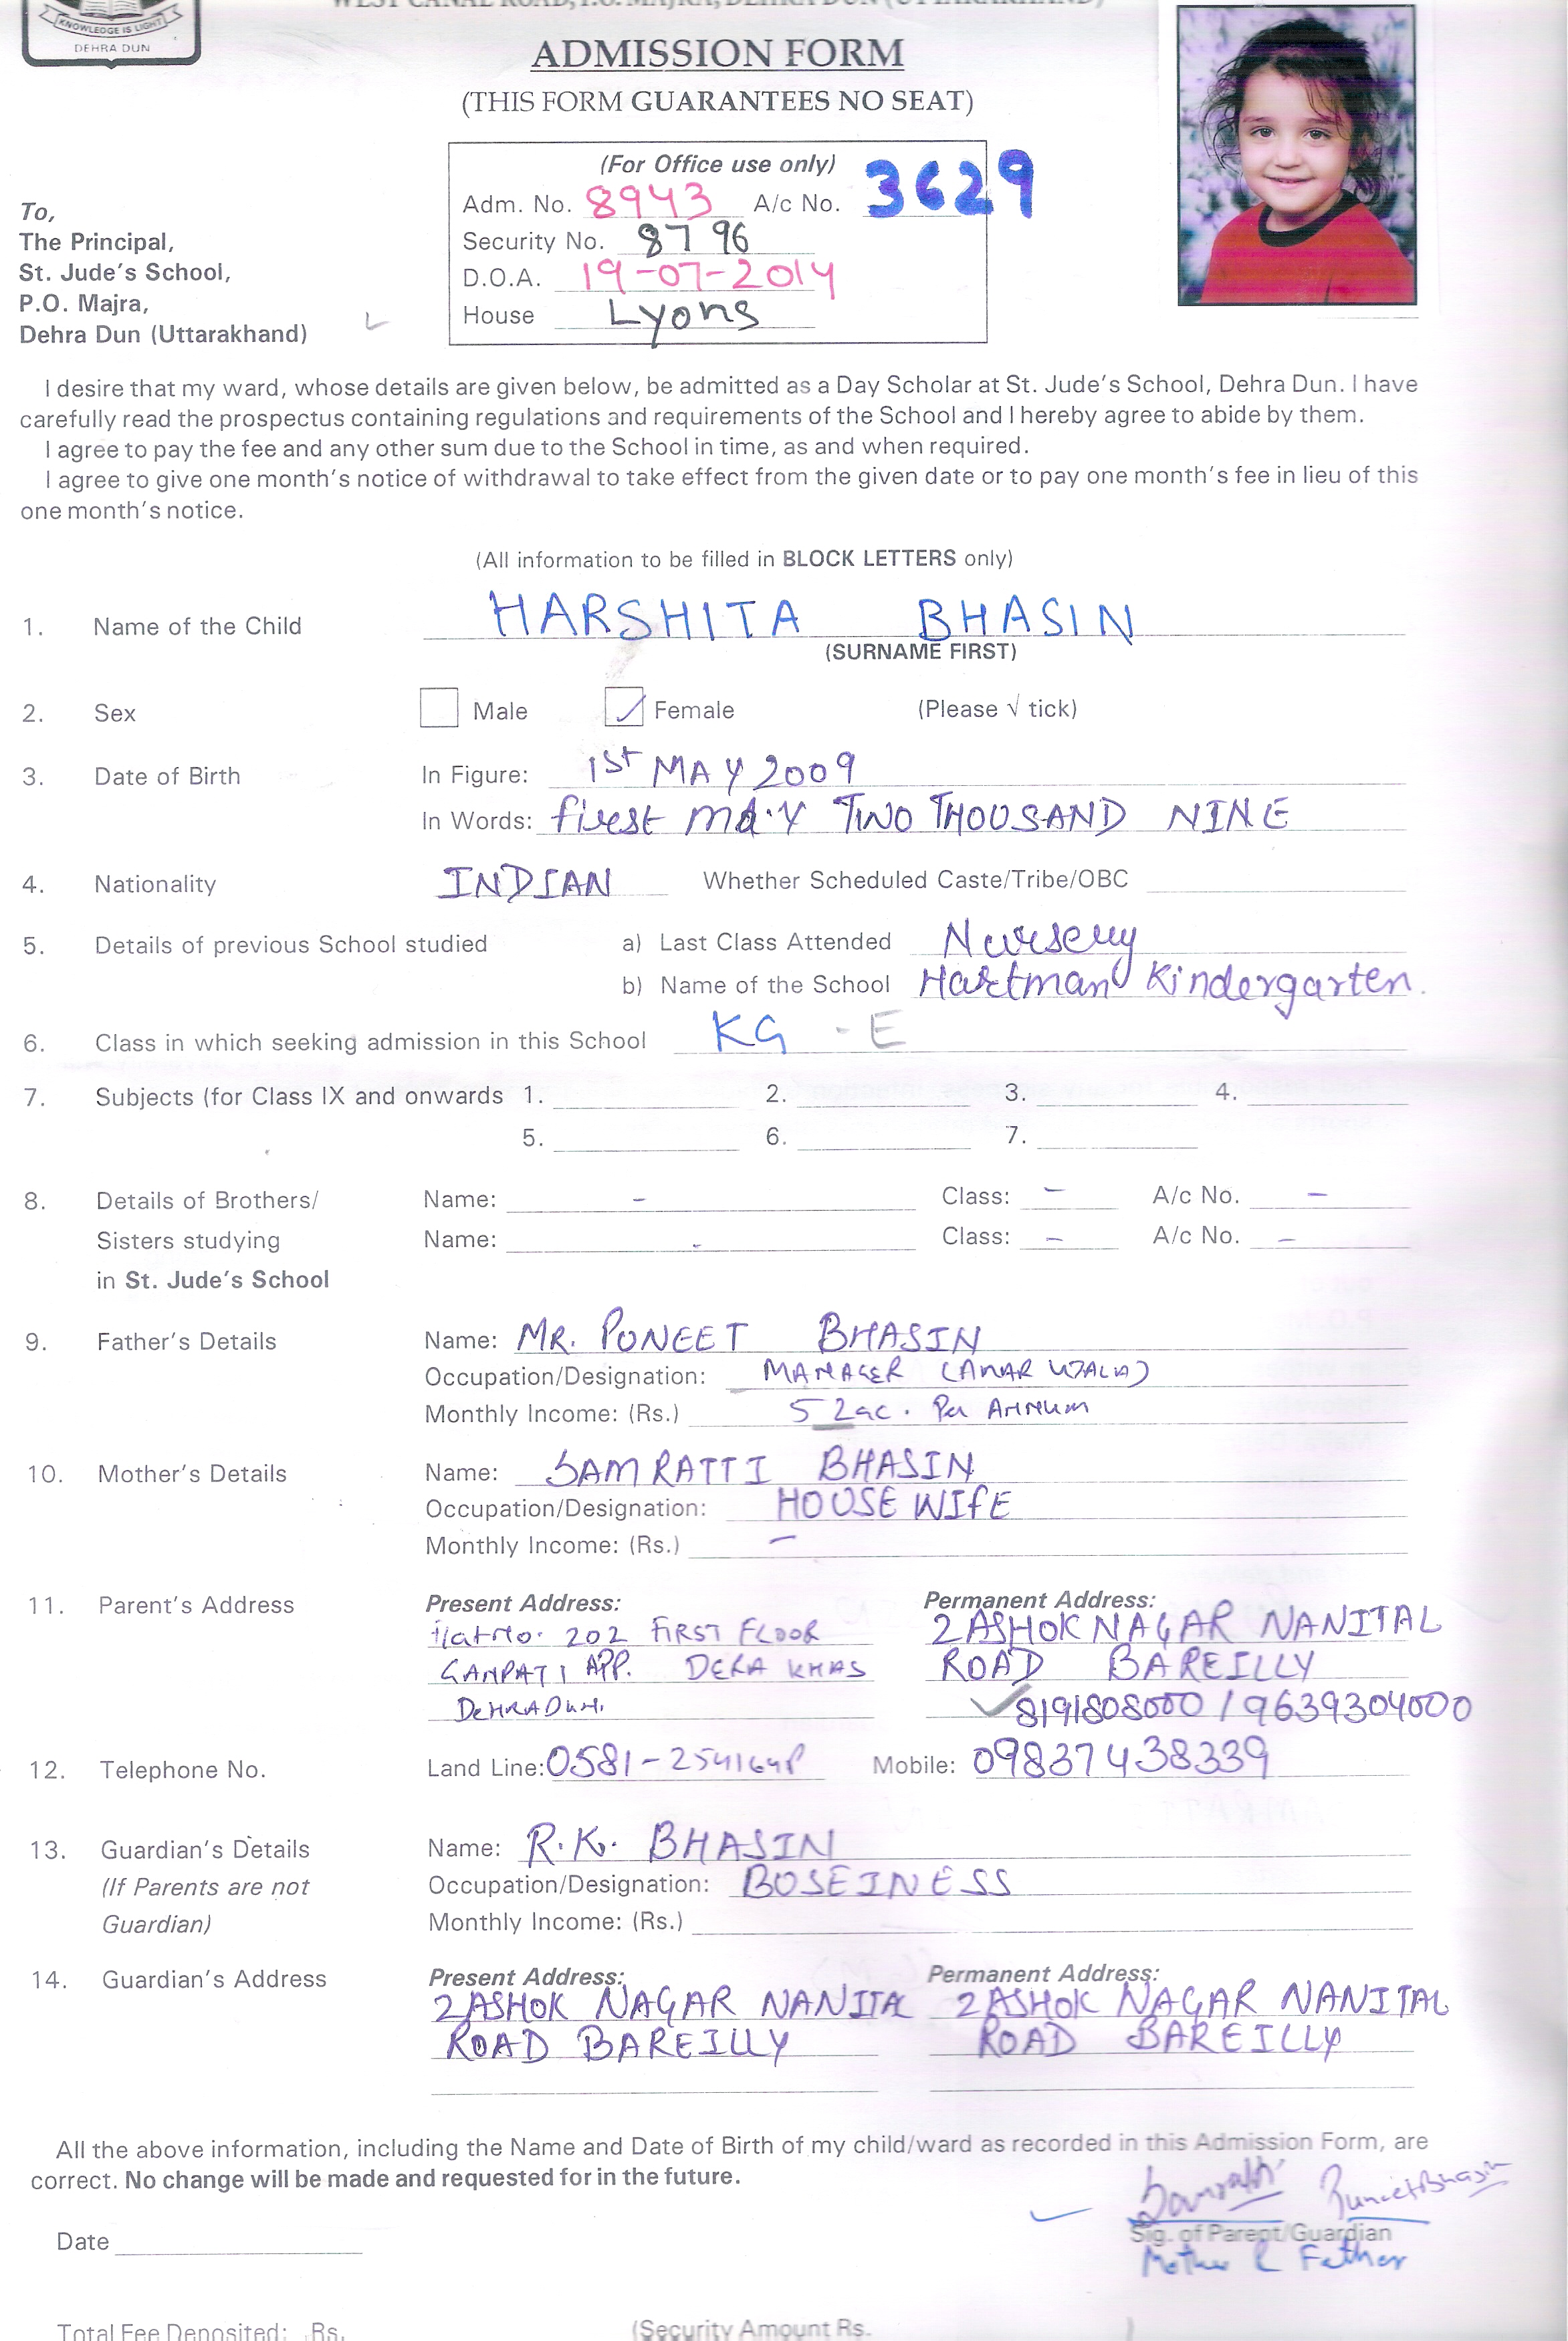 WEST CANAL ROAD, P.O. MAJRA, DEHRA DUN (UTTARAKHAND)
KNOWLEDGE IS LIGHT
DEHRA DUN
ADMISSION FORM
(THIS FORM GUARANTEES NO SEAT)
(For Office use only)
Adm. No. 8943 A/c No. 3629
Security No. 8796
D.O.A. 19-07-2014
House Lyons
To,
The Principal,
St. Jude's School,
P.O. Majra,
Dehra Dun (Uttarakhand)
I desire that my ward, whose details are given below, be admitted as a Day Scholar at St. Jude's School, Dehra Dun. I have
carefully read the prospectus containing regulations and requirements of the School and I hereby agree to abide by them.
I agree to pay the fee and any other sum due to the School in time, as and when required.
I agree to give one month's notice of withdrawal to take effect from the given date or to pay one month's fee in lieu of this
one month's notice.
(All information to be filled in BLOCK LETTERS only)
1. Name of the Child HARSHITA BHASIN
(SURNAME FIRST)
2. Sex Male Female (Please √ tick)
3. Date of Birth In Figure: 1st MAY 2009
In Words: first may TWO THOUSAND NINE
4. Nationality INDIAN Whether Scheduled Caste/Tribe/OBC
5. Details of previous School studied a) Last Class Attended Nursery
b) Name of the School Hartman Kindergarten.
6. Class in which seeking admission in this School KG - E
7. Subjects (for Class IX and onwards 1. 2. 3. 4.
5. 6. 7.
8. Details of Brothers/ Name: - Class: - A/c No. -
Sisters studying Name: - Class: - A/c No. -
in St. Jude's School
9. Father's Details Name: MR. PUNEET BHASIN
Occupation/Designation: MANAGER (AMAR UJALA)
Monthly Income: (Rs.) 5 Lac. Per Annum
10. Mother's Details Name: SAMRATTI BHASIN
Occupation/Designation: HOUSE WIFE
Monthly Income: (Rs.) -
11. Parent's Address Present Address: Permanent Address:
Flat No. 202 FIRST FLOOR 2 ASHOK NAGAR NANITAL
GANPATI APP. DERA KHAS ROAD BAREILLY
DEHRADUN. 8191808000 / 9639304000
12. Telephone No. Land Line: 0581- Mobile: 09837438339
13. Guardian's Details Name: R.K. BHASIN
(If Parents are not Occupation/Designation: BOSEINESS
Guardian) Monthly Income: (Rs.)
14. Guardian's Address Present Address: Permanent Address:
2 ASHOK NAGAR NANITAL 2 ASHOK NAGAR NANITAL
ROAD BAREILLY ROAD BAREILLY
All the above information, including the Name and Date of Birth of my child/ward as recorded in this Admission Form, are
correct. No change will be made and requested for in the future.
Samratti Puneet Bhasin
Date Sig. of Parent/Guardian
Mother & Father
Total Fee Deposited: Rs. (Security Amount Rs. )